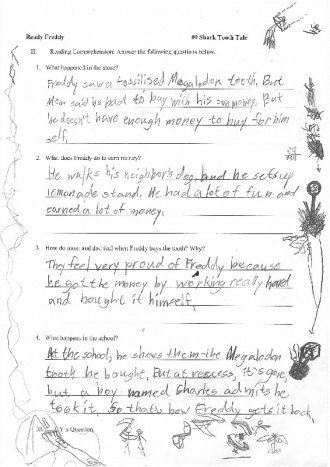 Ready Freddy #9 Shark Tooth Tale
II. Reading Comprehension: Answer the following questions below.
1. What happened in the store?
Freddy saw a fossilised Megalodon tooth. But
Mom said he had to buy with his own money. But
he doesn't have enough money to buy for him
self.
2. What does Freddy do to earn money?
He walks his neighbor's dog, and he sets up
lemonade stand. He had a lot of fun and
earned in a lot of money.
3. How do mom and dad feel when Freddy buys the tooth? Why?
They feel very proud of Freddy because
he got the money by working really hard
and bought it himself.
4. What happens in the school?
At the school, he shows them the Megalodon
tooth he bought. But at recess, it's gone,
but a boy named Charles admits he
took it. So that's how Freddy gets it back.
's Question